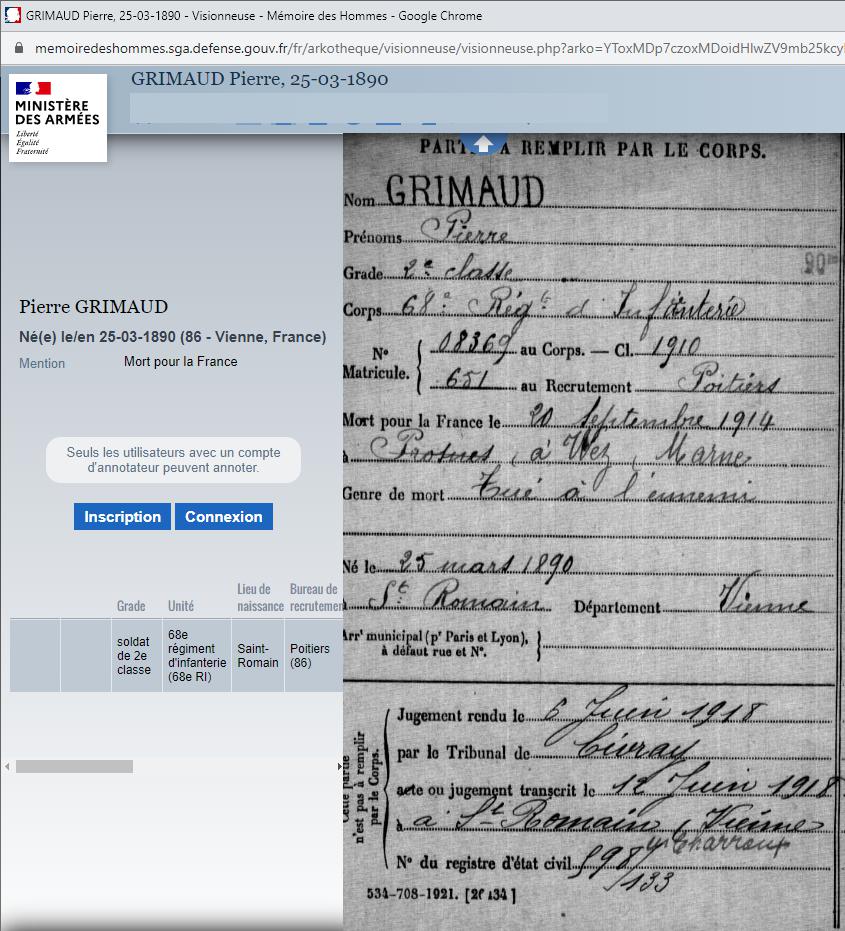 GRIMAUD Pierre, 25-03-1890 - Visionneuse - Mémoire des Hommes - Google Chrome
memoiredeshommes.sga.defense.gouv.fr/fr/arkotheque/visionneuse/visionneuse.php?arko=YToxMDp7czoxMDoidHlwZV9mb25kcy
GRIMAUD Pierre, 25-03-1890
MINISTÈRE
DES ARMÉES
Liberté
Égalité
Fraternité
Pierre GRIMAUD
Né(e) le/en 25-03-1890 (86 - Vienne, France)
Mention Mort pour la France
Seuls les utilisateurs avec un compte
d'annotateur peuvent annoter.
Inscription Connexion
Grade Unité Lieu de naissance Bureau de recrutemen
soldat de 2e classe 68e régiment d'infanterie (68e RI) Saint-Romain Poitiers (86)
A REMPLIR PAR LE CORPS.
Nom GRIMAUD
Prénoms Pierre
Grade 2e classe
Corps 68e Régt d'Infanterie
No Matricule. 08369 au Corps. — Cl. 1910
651 au Recrutement Poitiers
Mort pour la France le 20 Septembre 1914
à Prosnes, à Wez, Marne
Genre de mort Tué à l'ennemi
Né le 25 mars 1890
à St Romain Département Vienne
Arrt municipal (pr Paris et Lyon),
à défaut rue et No.
Cette partie
n'est pas à remplir
par le Corps.
Jugement rendu le 6 Juin 1918
par le Tribunal de Civray
acte ou jugement transcrit le 12 Juin 1918
à à St Romain (Vienne
Charroux
No du registre d'état civil 598/133
534-708-1921. [26434]